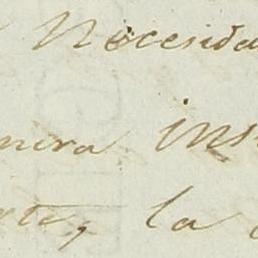 Necesida
nera ins
rte, la